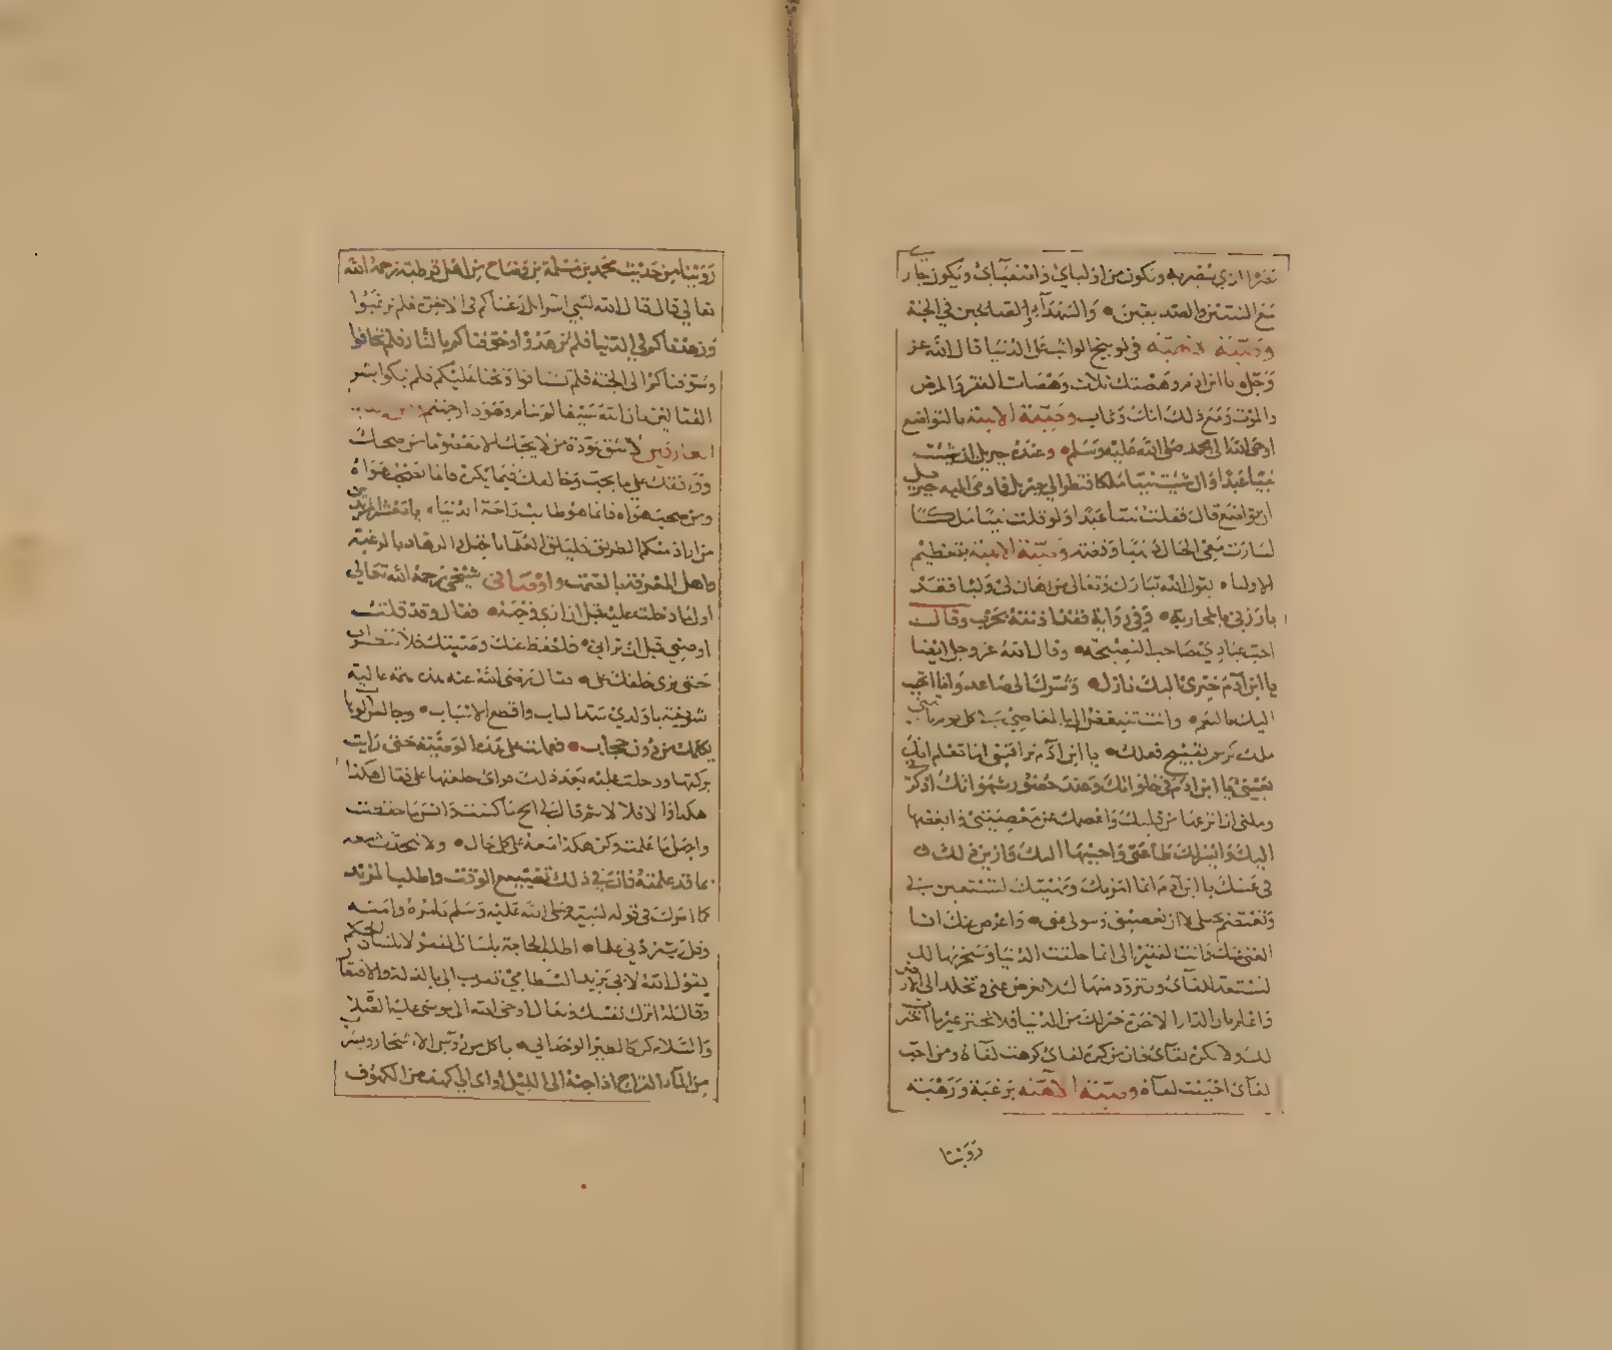 نغتر الذي نتقرب ويكون من اوليائي واصفيائي ويكون جار
مع النبيين والصديقين والشهداء والصالحين في الجنة
وصية الهية في توبيخ الواثب على الدنيا قال الله عز
وجل يا ابن ادم رهصتك ثلاث رهصات الفقر والمرض
والموت ومع ذلك انك وثاب وصية الهية بالتواضع
اوحى الله الى محمد صلى الله عليه وسلم وعنده جبريل ان شئت
نبيا عبدا وان شئت نبيا ملكا فنظر الى جبريل فاومى اليه جبريل
ان تواضع قال فقلت نبيا عبدا ولو قلت نبيا ملكا
لسارت معي الجبال ذهبا وفضة وصية الهية بتعظيم
الاولياء يقول الله تبارك وتعالى من اهان لي وليا فقد
بارزني بالمحاربة وفي رواية فقد اذنته بحرب وقال
احب عبادي صاحب النصيحة وقال الله عز وجل ايضا
يا ابن آدم خيري اليك نازل وشرك الي صاعد وانا اتحبب
اليك بالنعم وانت تتبغض الي بالمعاصي في كل يوم ياتيني
ملك كريم بقبيح فعلك يا ابن آدم ما تراقبني اما تعلم انك
بعيني يا ابن ادم في خلواتك وعند حضور شهواتك اذكرني
وسلني ان انزعها من قلبك واعصمك عن معصيتي وابغضها
اليك وايسر لك طاعتي واحببها اليك وازين ذلك
في عينك يا ابن آدم انما امرتك ونهيتك لتستعين بي
وتعتصم بحبلي لا ان تعصيني وتتولى عني واعرض عنك انا
الغني عنك وانت الفقير الي انما خلقت الدنيا وسخرتها لك
لتستعد للقائي وتتزود منها لئلا تعرض عني وتخلد الى الارض
واعلم بان الدار الاخرة خير لك من الدنيا فلا تختر غير ما اخترت
لك ولا تكره لقائي فان من كره لقائي كرهت لقاه ومن احب
لقائي احببت لقاه وصية الهية برغبة ورهبة
روينا
روينا من حديث محمد بن مسلمة بن وضاح من اهل قرطبة رحمه الله
تعالى قال قال الله لنبي اسرايل رغبناكم في الاخرة فلم ترغبوا
وزهدناكم في الدنيا فلم تزهدوا وخوفناكم بالنار فلم تخافوا
وشوقناكم الى الجنة فلم تشتاقوا ونحنا عليكم فلم تبكوا بشر
القتالين بان لله سيفا لا ينام وهو دار جهنم
العارفين لا تثق بمودة من لا يحبك الا معصوما من صحبك
ووافقك على ما يحب وخالفك فيما يكره فانما يصحب هواه
ومن صحب هواه فانما هو طالب راحة الدنيا يا معشر المريدين
من اراد منكم الطريق فليلق العلماء بالجهل والزهاد بالرغبة
واهل المعرفة بالصمت واوصاني شيخي رحمه الله تعالى
اول ما دخلت عليه قبل ان ارى وجهه فقال وقد قلت
اوصني قبل ان تراني فاحفظ عنك وصيتك فلا تنظر الي
حتى ترى خلعتك علي فقال رضي الله عنه هذه همة عالية
شريفة يا ولدي سد الباب واقطع الاسباب وجالس الوهاب
يكلمك من دون حجاب فعملت على هذه الوصية حتى رايت
بركتها ودخلت عليه بعد ذلك فراى خلعتها علي فقال هكذا
هكذا والا فلا لا ثم قال لي امح ما كتبت وانس ما حفظت
واجهل ما علمت وكن هكذا معه على كل حال ولا تحدث معه
بما قد علمته فان في ذلك تضييع الوقت واطلب المزيد
كما امرك في قوله لنبيه صلى الله عليه وسلم يامره وامته
وقل رب زدني علما اطلب الحاجة بلسان الفقر لا بلسان الحكم
يقول الله لابي يزيد البسطامي تقرب الي بالذلة والافتقار
وقال له اترك نفسك وتعال اوحى الله الى موسى عليه الصلاة
والسلام كن كالطير الوحداني ياكل من رؤس الاشجار ويشرب
من الماء القراح اذا جنه الليل اوى الى كهف من الكهوف